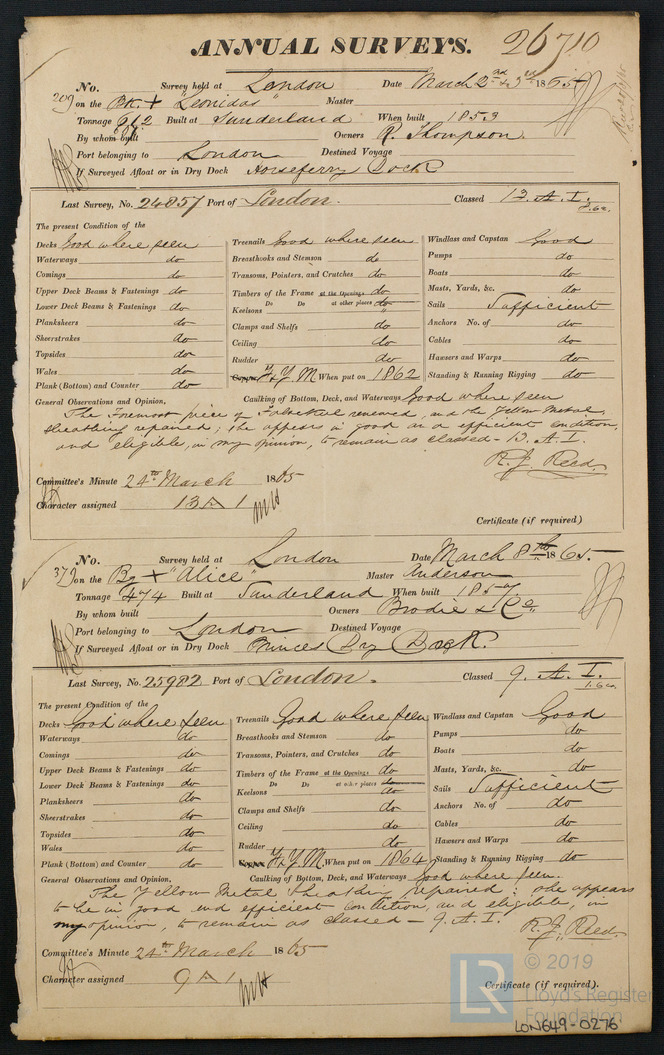 ANNUAL SURVEYS. 26710
No. Survey held at London Date March 2nd & 3rd 1865
209 on the Bk + "Leonidas" Master
Tonnage 612 Built at Sunderland When built 1853
By whom built Owners R. Thompson
Port belonging to London Destined Voyage
If Surveyed Afloat or in Dry Dock Horseferry Dock
Last Survey, No. 24857 Port of London. Classed 13. A. I.
The present Condition of the
Decks Good where seen
Waterways do
Comings do
Upper Deck Beams & Fastenings do
Lower Deck Beams & Fastenings do
Planksheers do
Sheerstrakes do
Topsides do
Wales do
Plank (Bottom) and Counter do
Treenails Good where seen
Breasthooks and Stemson do
Transoms, Pointers, and Crutches do
Timbers of the Frame at the Openings do
Do Do at other places do
Keelsons "
Clamps and Shelfs do
Ceiling do
Rudder do
Copper F & Y.M When put on 1862
Windlass and Capstan Good
Pumps do
Boats do
Masts, Yards, &c. do
Sails Sufficient
Anchors No. of do
Cables do
Hawsers and Warps do
Standing & Running Rigging do
General Observations and Opinion, Caulking of Bottom, Deck, and Waterways Good where seen
The Foremost piece of Falsekeel renewed, and the Yellow Metal
Sheathing repaired; she appears in good and efficient condition,
and eligible, in my opinion, to remain as classed - 13. A. I.
R. J. Reed.
Committee's Minute 24th March 1865
Character assigned 13 A 1
Certificate (if required)
No. Survey held at London Date March 8th 1865.
379 on the Bg + "Alice" Master Anderson
Tonnage 474 Built at Sunderland When built 1857
By whom built Owners Brodie & Co.
Port belonging to London Destined Voyage
If Surveyed Afloat or in Dry Dock Princes Dry Dock.
Last Survey, No. 25982 Port of London. Classed 9. A. I.
1.64
The present Condition of the
Decks Good where seen
Waterways do
Comings do
Upper Deck Beams & Fastenings do
Lower Deck Beams & Fastenings do
Planksheers do
Sheerstrakes do
Topsides do
Wales do
Plank (Bottom) and Counter do
Treenails Good where seen
Breasthooks and Stemson do
Transoms, Pointers, and Crutches do
Timbers of the Frame at the Openings do
Do Do at other places do
Keelsons do
Clamps and Shelfs do
Ceiling do
Rudder do
Copper F & Y.M. When put on 1864
Windlass and Capstan Good
Pumps do
Boats do
Masts, Yards, &c. do
Sails Sufficient
Anchors No. of do
Cables do
Hawsers and Warps do
Standing & Running Rigging do
General Observations and Opinion, Caulking of Bottom, Deck, and Waterways Good where seen.
The Yellow Metal Sheathing repaired; she appears
to be in good and efficient condition, and eligible, in
my opinion, to remain as classed - 9. A. I. R. J. Reed.
Committee's Minute 24th March 1865
Character assigned 9 A 1
Certificate (if required).
LR © 2019
Lloyd's Register
Foundation
LON649-0276